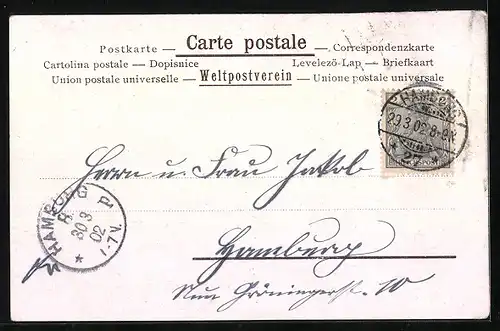 Postkarte — Carte postale — Correspondenzkarte
Cartolina postale — Dopisnice Levelező-Lap — Briefkaart
Union postale universelle — Weltpostverein — Unione postale universale
HAMBURG
29.3.02. 8-9N.
* 27 *
Herrn u. Frau Jakob
HAMBURG
30 3
02
1-7V.
*
Hamburg
Gröningerstr. 10